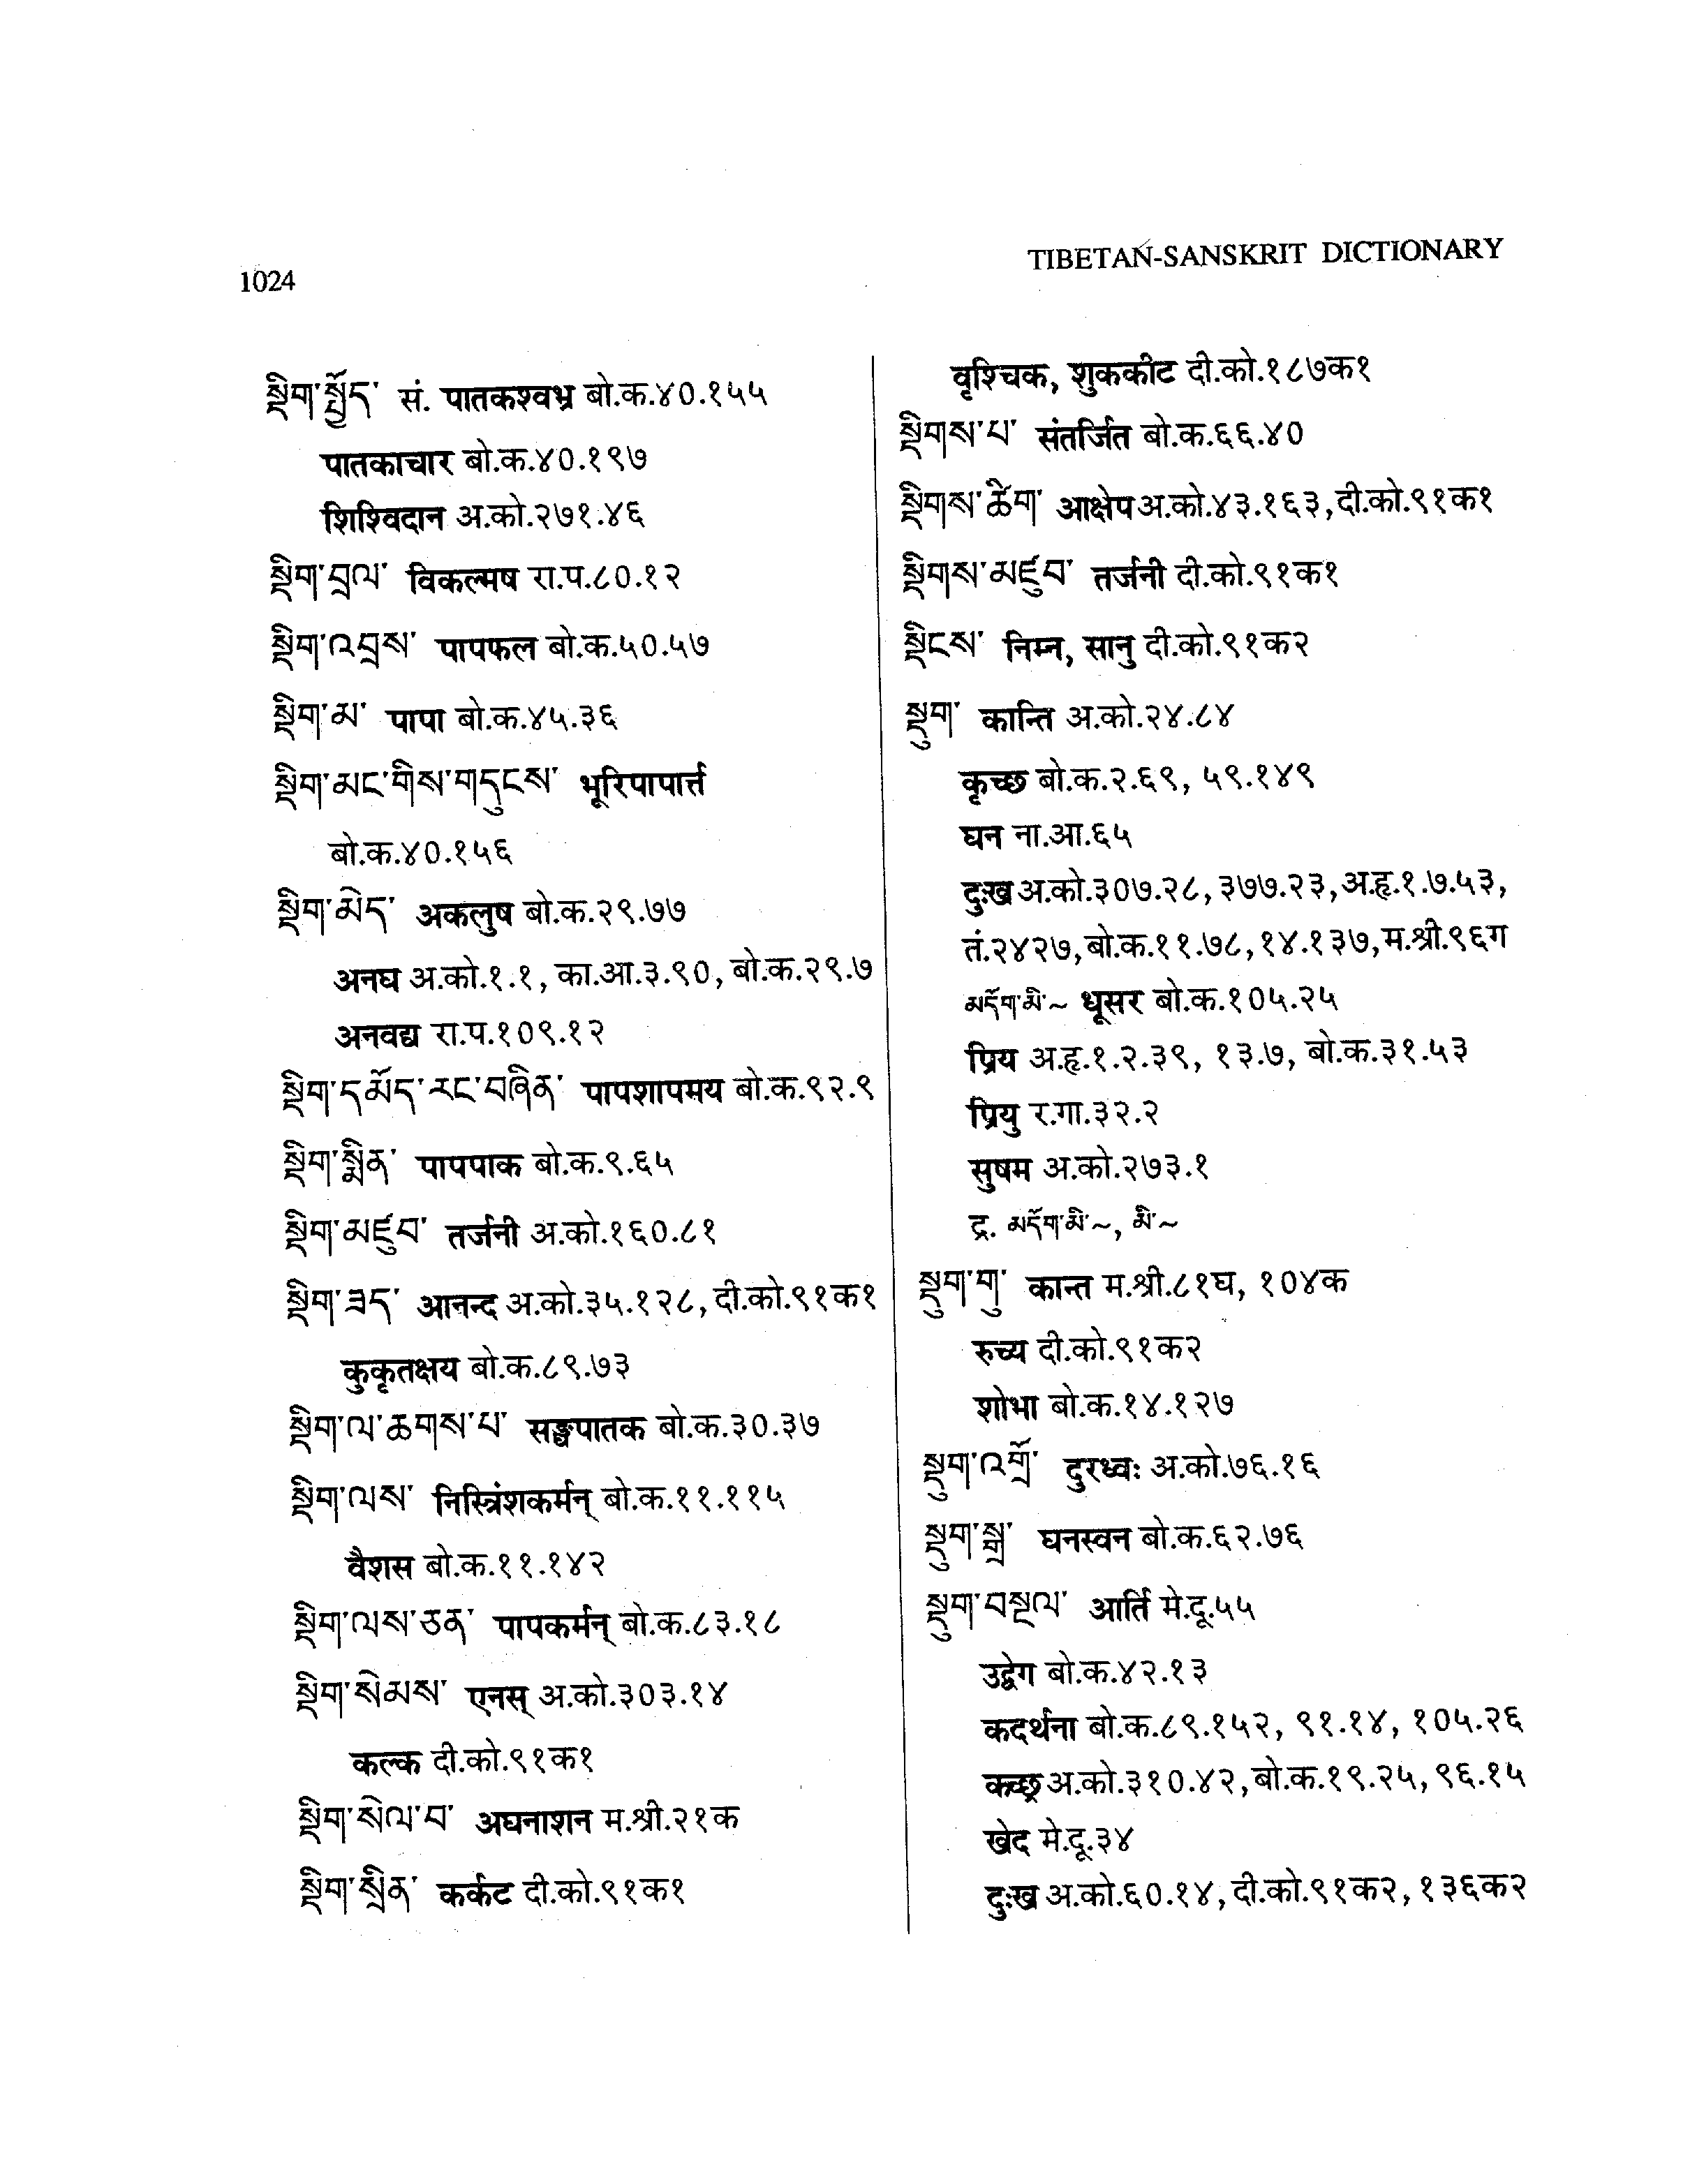 1024
TIBETAN-SANSKRIT DICTIONARY
སྡིག་སྤྱོད་ सं. पातकश्वभ्र बो.क.४०.१५५
पातकाचार बो.क.४०.१९७
शिश्विदान अ.को.२७१.४६
སྡིག་བྲལ་ विकल्मष रा.प.८०.१२
སྡིག་འབྲས་ पापफल बो.क.५०.५७
སྡིག་མ་ पापा बो.क.४५.३६
སྡིག་མང་གིས་གདུངས་ भूरिपापार्त्त
बो.क.४०.१५६
སྡིག་མེད་ अकलुष बो.क.२९.७७
अनघ अ.को.१.१, का.आ.३.९०, बो.क.२९.७
अनवद्य रा.प.१०९.१२
སྡིག་དམོད་རང་བཞིན་ पापशापमय बो.क.९२.९
སྡིག་སྨིན་ पापपाक बो.क.९.६५
སྡིག་མཛུབ་ तर्जनी अ.को.१६०.८१
སྡིག་ཟད་ आनन्द अ.को.३५.१२८, दी.को.९१क१
कुकृतक्षय बो.क.८९.७३
སྡིག་ལ་ཆགས་པ་ सङ्घपातक बो.क.३०.३७
སྡིག་ལས་ निस्त्रिंशकर्मन् बो.क.११.११५
वैशस बो.क.११.१४२
སྡིག་ལས་ཅན་ पापकर्मन् बो.क.८३.१८
སྡིག་སེམས་ एनस् अ.को.३०३.१४
कल्क दी.को.९१क१
སྡིག་སེལ་བ་ अघनाशन म.श्री.२१क
སྡིག་སྲིན་ कर्कट दी.को.९१क१
वृश्चिक, शुककीट दी.को.१८७क१
སྡིགས་པ་ संतर्जित बो.क.६६.४०
སྡིགས་ཚིག་ आक्षेप अ.को.४३.१६३, दी.को.९१क१
སྡིགས་མཛུབ་ तर्जनी दी.को.९१क१
སྡིངས་ निम्न, सानु दी.को.९१क२
སྡུག་ कान्ति अ.को.२४.८४
कृच्छ बो.क.२.६९, ५९.१४९
घन ना.आ.६५
दुःख अ.को.३०७.२८, ३७७.२३, अ.हृ.१.७.५३,
तं.२४२७, बो.क.११.७८, १४.१३७, म.श्री.९६ग
མདོག་མི་~ धूसर बो.क.१०५.२५
प्रिय अ.हृ.१.२.३९, १३.७, बो.क.३१.५३
प्रियु र.गा.३२.२
सुषम अ.को.२७३.१
द्र. མདོག་མི་~, མི་~
སྡུག་གུ་ कान्त म.श्री.८१घ, १०४क
रुच्य दी.को.९१क२
शोभा बो.क.१४.१२७
སྡུག་འགྲོ་ दुरध्वः अ.को.७६.१६
སྡུག་སྒྲ་ घनस्वन बो.क.६२.७६
སྡུག་བསྔལ་ आर्ति मे.दू.५५
उद्वेग बो.क.४२.१३
कदर्थना बो.क.८९.१५२, ९१.१४, १०५.२६
कच्छ्र अ.को.३१०.४२, बो.क.१९.२५, ९६.१५
खेद मे.दू.३४
दुःख अ.को.६०.१४, दी.को.९१क२, १३६क२